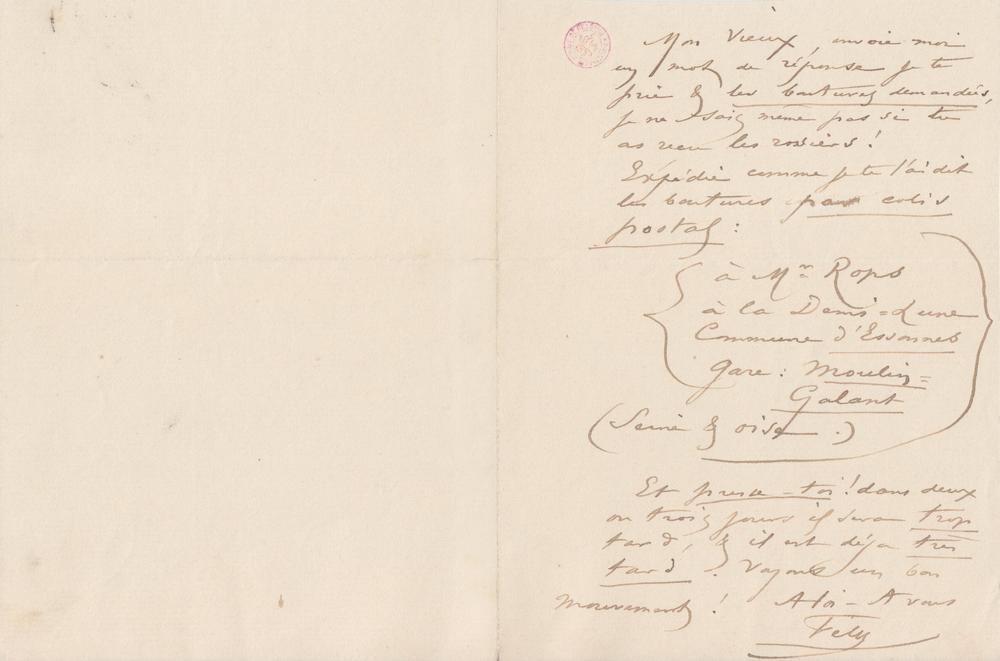 Mon Vieux, envoie moi
un mot de réponse je te
prie & les boutures demandées,
je ne sais même pas si tu
as reçu les rosiers !
Expédie comme je te l'ai dit
les boutures par colis
postal :
à Mr Rops
à la Demi=Lune
Commune d'Essonnes
Gare : Moulin=
Galant
(Seine & oise .)
Et presse-toi ! dans deux
ou trois jours il sera trop
tard, & il est déja très
tard ! Voyons un bon
mouvement !    A toi – A vous
Fély